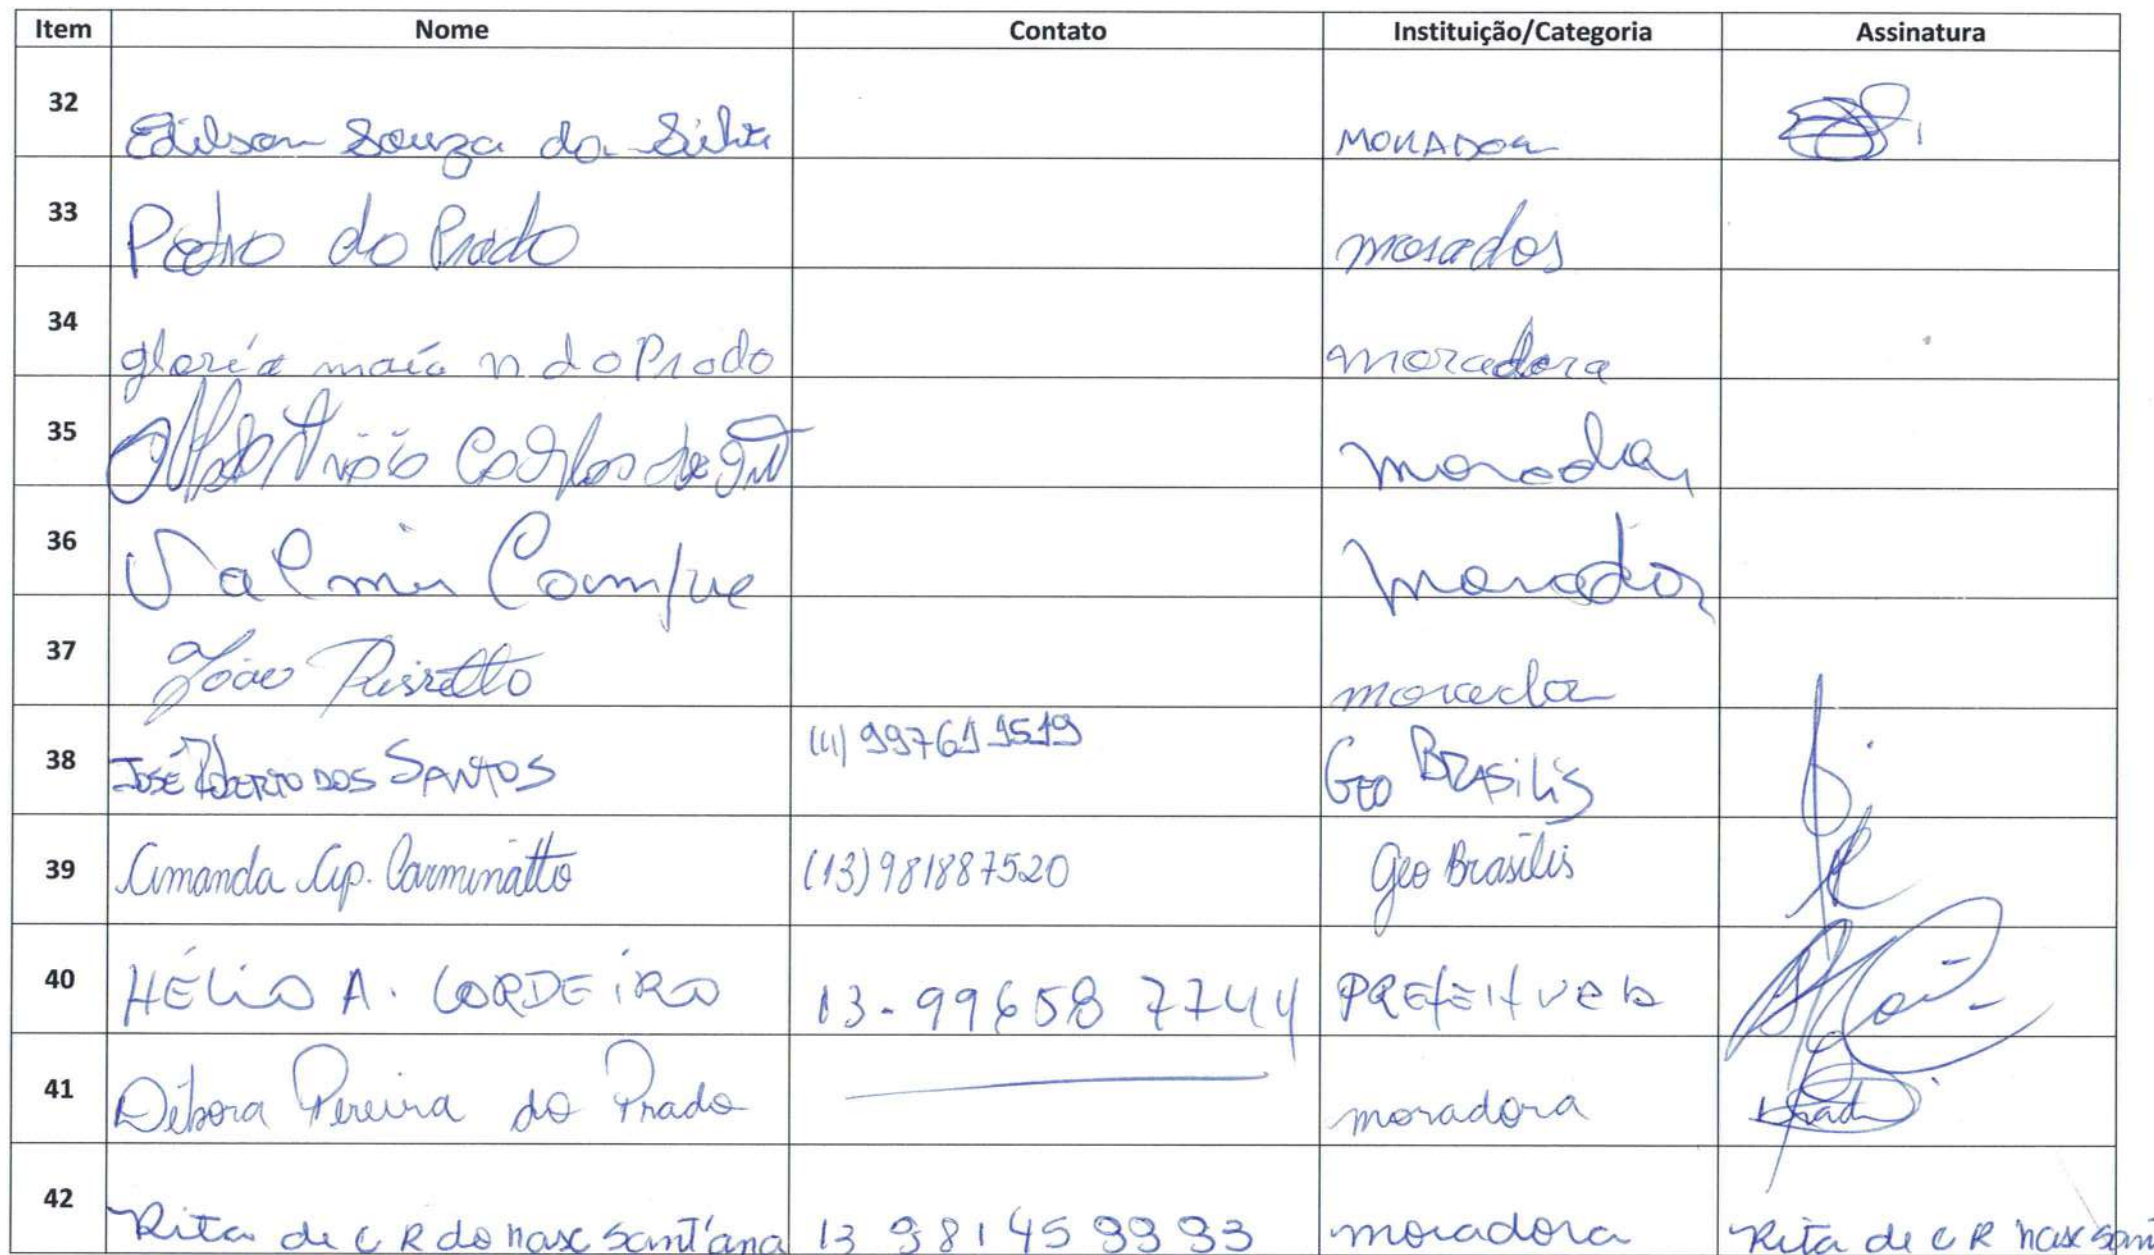 Item Nome Contato Instituição/Categoria Assinatura
32 Edilson Souza da Silva MORADOR
33 Pedro do Prado morador
34 gloria maía n do Prado moradora
35 Carlos de morador
36 Valmir morador
37 João morador
38 JOSÉ ROBERTO DOS SANTOS (11) 997611519 GEO BRASILIS
39 Amanda Ap. Carminatto (13)981887520 Geo Brasilis
40 HÉLIO A. CORDEIRO 13-99658 7744 PREFEITURA
41 Débora Pereira do Prado moradora Prado
42 Rita de C R do nasc Sant'ana 13 981459993 moradora Rita de C R nasc